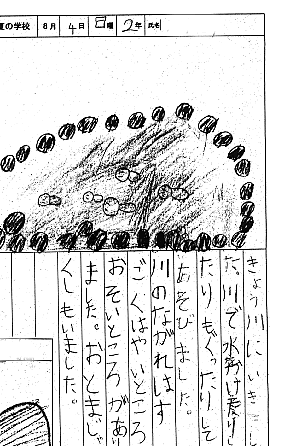 夏の学校 8月 4日 日曜 2年 氏名
きょう川にいきまし
た。川で水
たりもぐったりして
あそびました。
川のながれはす
ごくはやいところ
おそいところがあり
ました。おとまじゃ
くしもいました。